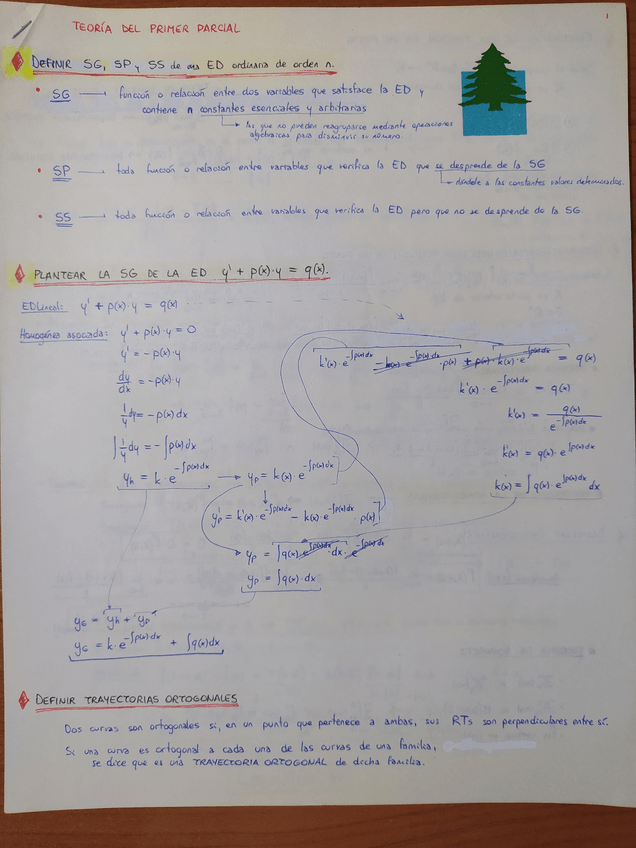 TEORÍA DEL PRIMER PARCIAL
1
DEFINIR SG, SP y SS de una ED ordinaria de orden n.
• SG → función o relación entre dos variables que satisface la ED y
contiene n constantes esenciales y arbitrarias
→ las que no pueden reagruparse mediante operaciones
algebraicas para disminuir su número.
• SP → toda función o relación entre variables que verifica la ED que se desprende de la SG
→ dándole a las constantes valores determinados.
• SS → toda función o relación entre variables que verifica la ED pero que no se desprende de la SG.
PLANTEAR LA SG DE LA ED y' + p(x)·y = q(x).
ED Lineal: y' + p(x)·y = q(x)
Homogénea asociada: y' + p(x)·y = 0
y' = -p(x)·y
dy/dx = -p(x)·y
1/y dy = -p(x) dx
∫ 1/y dy = -∫p(x) dx
yh = k·e^(-∫p(x)dx) → yp = k(x)·e^(-∫p(x)dx)
y'p = k'(x)·e^(-∫p(x)dx) - k(x)·e^(-∫p(x)dx)·p(x)
k'(x)·e^(-∫p(x)dx) - k(x)·e^(-∫p(x)dx)·p(x) + p(x)·k(x)·e^(-∫p(x)dx) = q(x)
k'(x)·e^(-∫p(x)dx) = q(x)
k'(x) = q(x)/e^(-∫p(x)dx)
k'(x) = q(x)·e^(∫p(x)dx)
k(x) = ∫q(x)·e^(∫p(x)dx) dx
yp = ∫q(x)·e^(∫p(x)dx)·dx·e^(-∫p(x)dx)
yp = ∫q(x)·dx
yG = yh + yp
yG = k·e^(-∫p(x)dx) + ∫q(x)dx
DEFINIR TRAYECTORIAS ORTOGONALES
Dos curvas son ortogonales si, en un punto que pertenece a ambas, sus RTs son perpendiculares entre sí.
Si una curva es ortogonal a cada una de las curvas de una familia,
se dice que es una TRAYECTORIA ORTOGONAL de dicha familia.